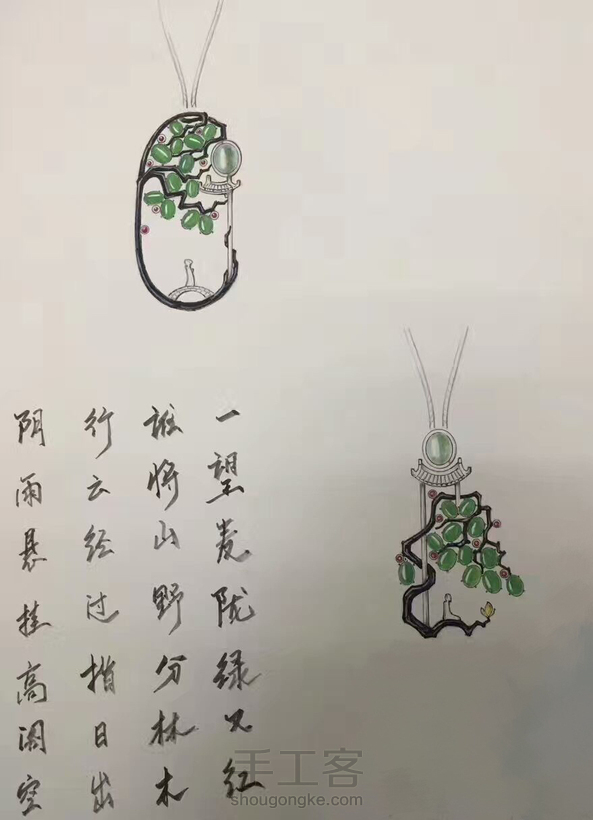 一望陇绿又红
谁将山野分林木
行云经过指日出
阴雨悬挂高空
手工客
shougongke.com